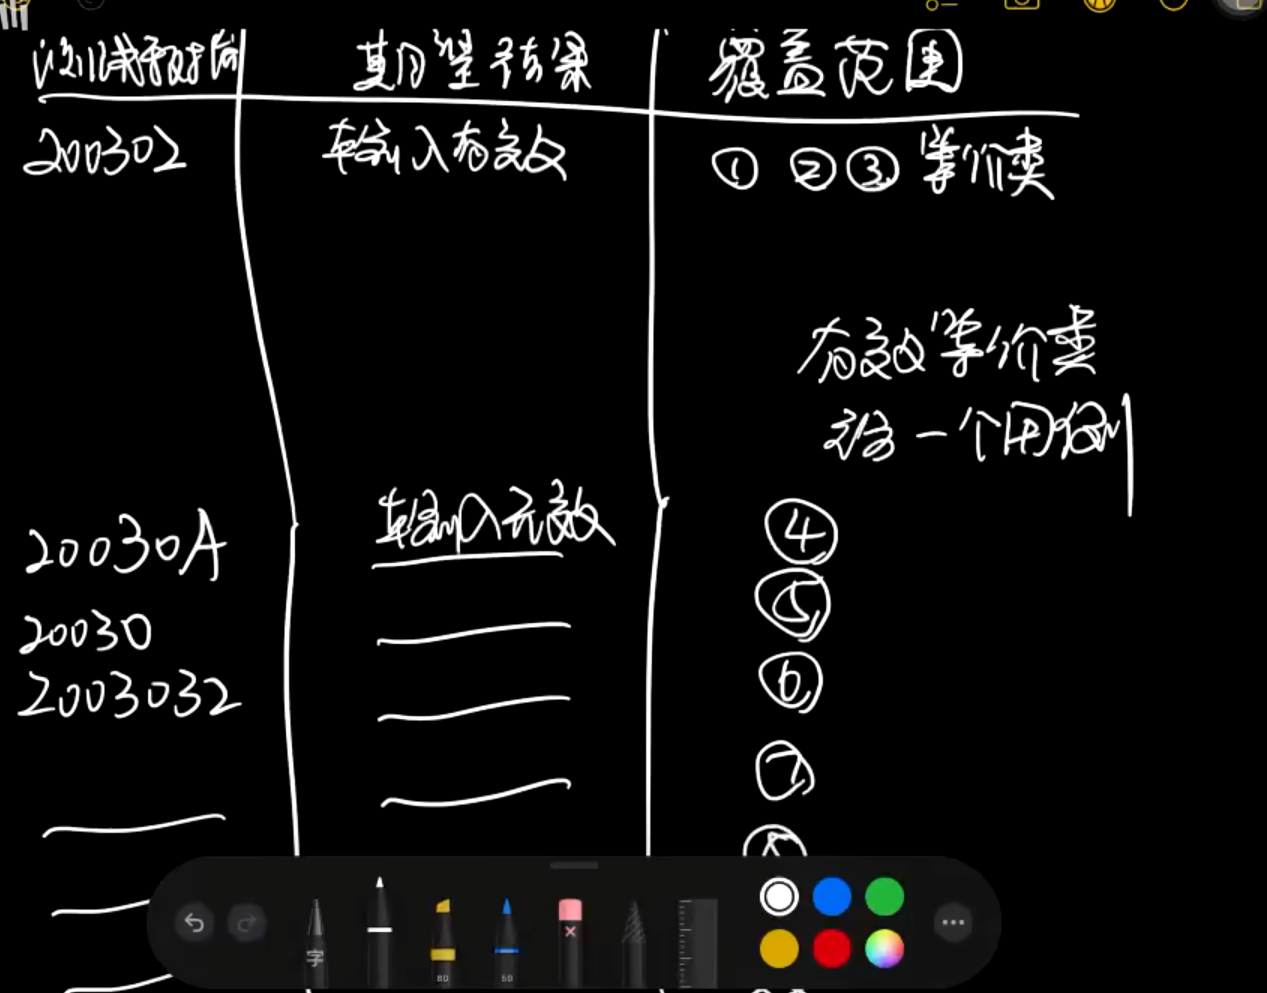 测试数据 期望结果 覆盖范围
200302 输入有效 ① ② ③ 等价类
有效等价类
一个用例
20030A 输入无效 ④
20030 ⑤
2003032 ⑥
⑦
字
80 50